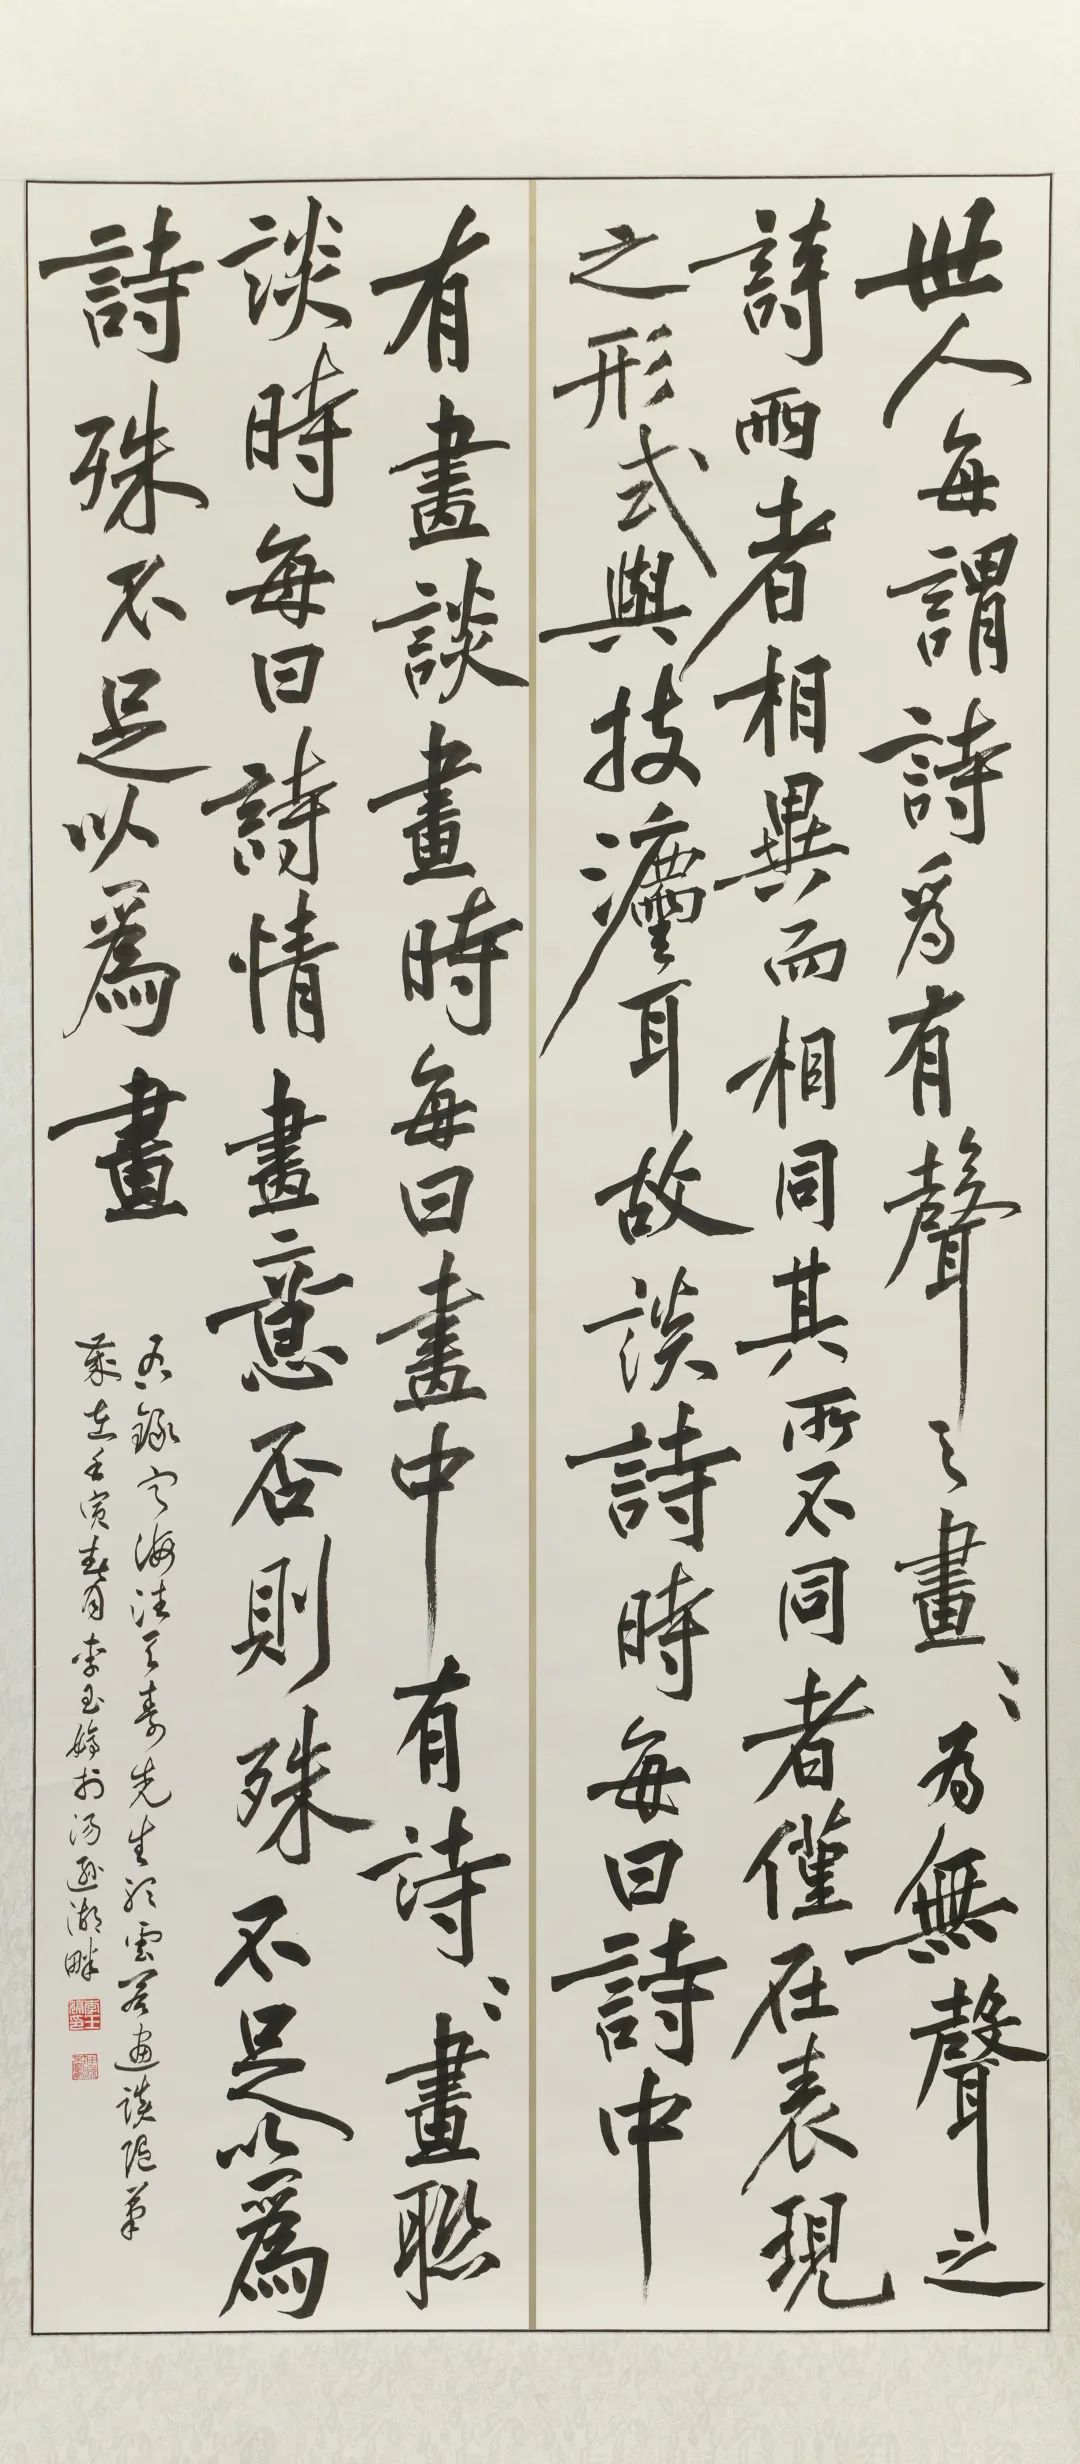 世人每謂詩爲有聲之畫、為無聲之
詩兩者相異而相同其所不同者僅在表現
之形式與技瀍耳故談詩時每曰詩中
有畫談畫時每曰畫中有詩、畫聯
談時每曰詩情畫意否則殊不足以為
詩殊不足以為畫
右錄寧海潘天壽先生聽雲閣畫談隨筆
歲在壬寅春月李玉嬌於湯遜湖畔